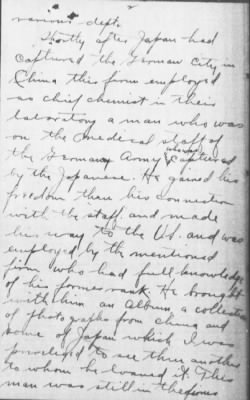 various dept.
Shortly after Japan had
captured the German City in
China this firm employed
as chief chemist in their
laboratory a man who was
on the medical staff of
the German Army & captured
by the Japanese. He gained his
freedom there his connection
with the staff and made
his way to the U.S. and was
employed by the mentioned
firm who had full knowledge
of his former rank. He brought
with him an Album a collection
of photographs from China and
some of Japan which I was
privileged to see thru another
to whom he loaned it. This
man was still in the firms